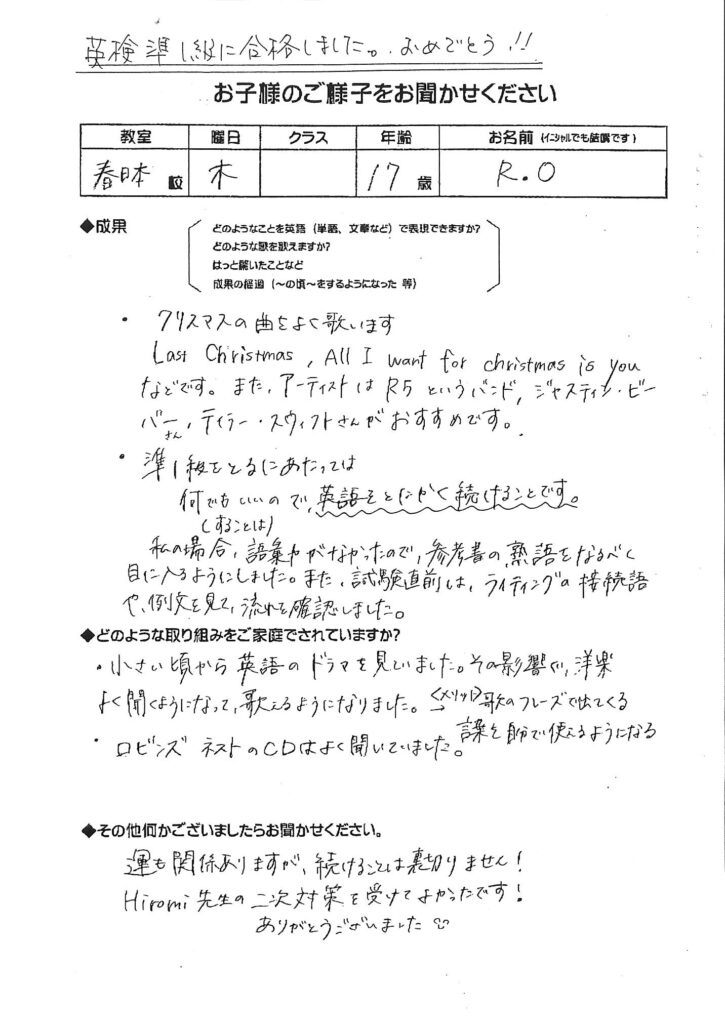 英検準1級に合格しました。おめでとう!!
お子様のご様子をお聞かせください
教室 曜日 クラス 年齢 お名前(イニシャルでも結構です)
春日本校 木 17歳 R.O
◆成果
どのようなことを英語(単語、文章など)で表現できますか?
どのような歌を歌えますか?
はっと驚いたことなど
成果の経過(〜の頃〜をするようになった 等)
・クリスマスの曲をよく歌います
Last Christmas, All I want for christmas is you
などです。また、アーティストは R5 というバンド, ジャスティン・ビー
バーさん、テイラー・スウィフトさんがおすすめです。
・準1級をとるにあたっては
何でもいいので、英語をとにかく続けることです。
(することは)
私の場合、語彙力がなかったので、参考書の熟語をなるべく
目に入るようにしました。また、試験直前は、ライティングの接続語
や、例文を見て、流れを確認しました。
◆どのような取り組みをご家庭でされていますか?
・小さい頃から英語のドラマを見ていました。その影響で、洋楽
よく聞くようになって、歌えるようになりました。<メリット>歌のフレーズで出てくる
→ 言葉を自分で使えるようになる
・ロビンズ ネストのCDはよく聞いていました。
◆その他何かございましたらお聞かせください。
運も関係ありますが、続けることは裏切りません!
Hiromi先生の二次対策を受けてよかったです!
ありがとうございました